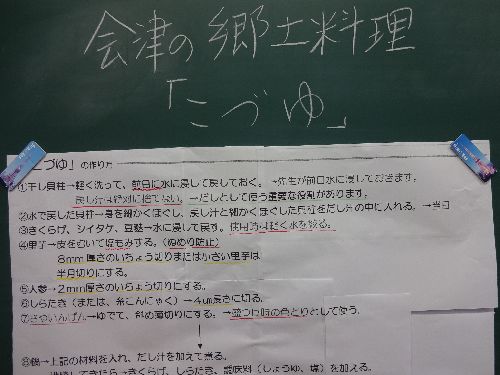 会津の郷土料理
「こづゆ」
「こづゆ」の作り方
①干し貝柱→軽く洗って、前日に水に浸して戻しておく。→先生が前日水に浸しておきます。
戻し汁は絶対に捨てない。→だしとして使う重要な役割があります。
②水で戻した貝柱→身を細かくほぐし、戻し汁と細かくほぐした貝柱をだし汁の中に入れる。→当日
③きくらげ、シイタケ、豆麩→水に浸して戻す。使用時は軽く水を絞る。
④里芋→皮をむいて塩もみする。(ぬめり防止)
8mm厚さのいちょう切りまたは小さい里芋は
半月切りにする。
⑤人参→2mm厚さのいちょう切りにする。
⑥しらたき(または、糸こんにゃく)→4cm長さに切る。
⑦さやいんげん→ゆでて、斜め薄切りにする。→盛つけ時の色どりとして使う。
↓
⑧鍋→上記の材料を入れ、だし汁を加えて煮る。
沸騰してきたら→きくらげ、しらたき、調味料(しょうゆ、塩)を加える。